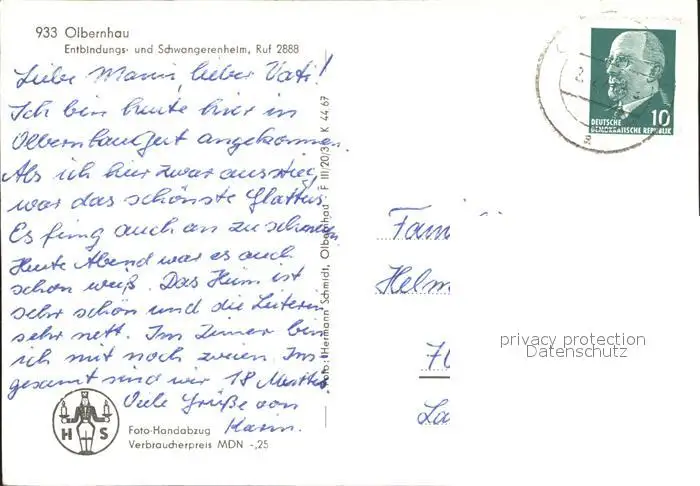 933 Olbernhau
Entbindungs- und Schwangerenheim, Ruf 2888
Liebe Mami, lieber Vati!
Ich bin heute hier in
Olbernhau gut angekommen.
Als ich hier zwar ausstieg,
war das schönste Glatteis.
Es fing auch an zu schneien
Heute Abend war es auch
schon weiß. Das Heim ist
sehr schön und die Leiterin
sehr nett. Im Zimmer bin
ich mit noch zweien. Ins-
gesamt sind wir 18 Muttis
Viele Grüße von
Karin.
H S
Foto-Handabzug
Verbraucherpreis MDN -,25
Foto: Hermann Schmidt, Olbernhau · F III/20/3 K 44 67
DEUTSCHE
DEMOKRATISCHE REPUBLIK
10
Fam
Helm
70
La
privacy protection
Datenschutz